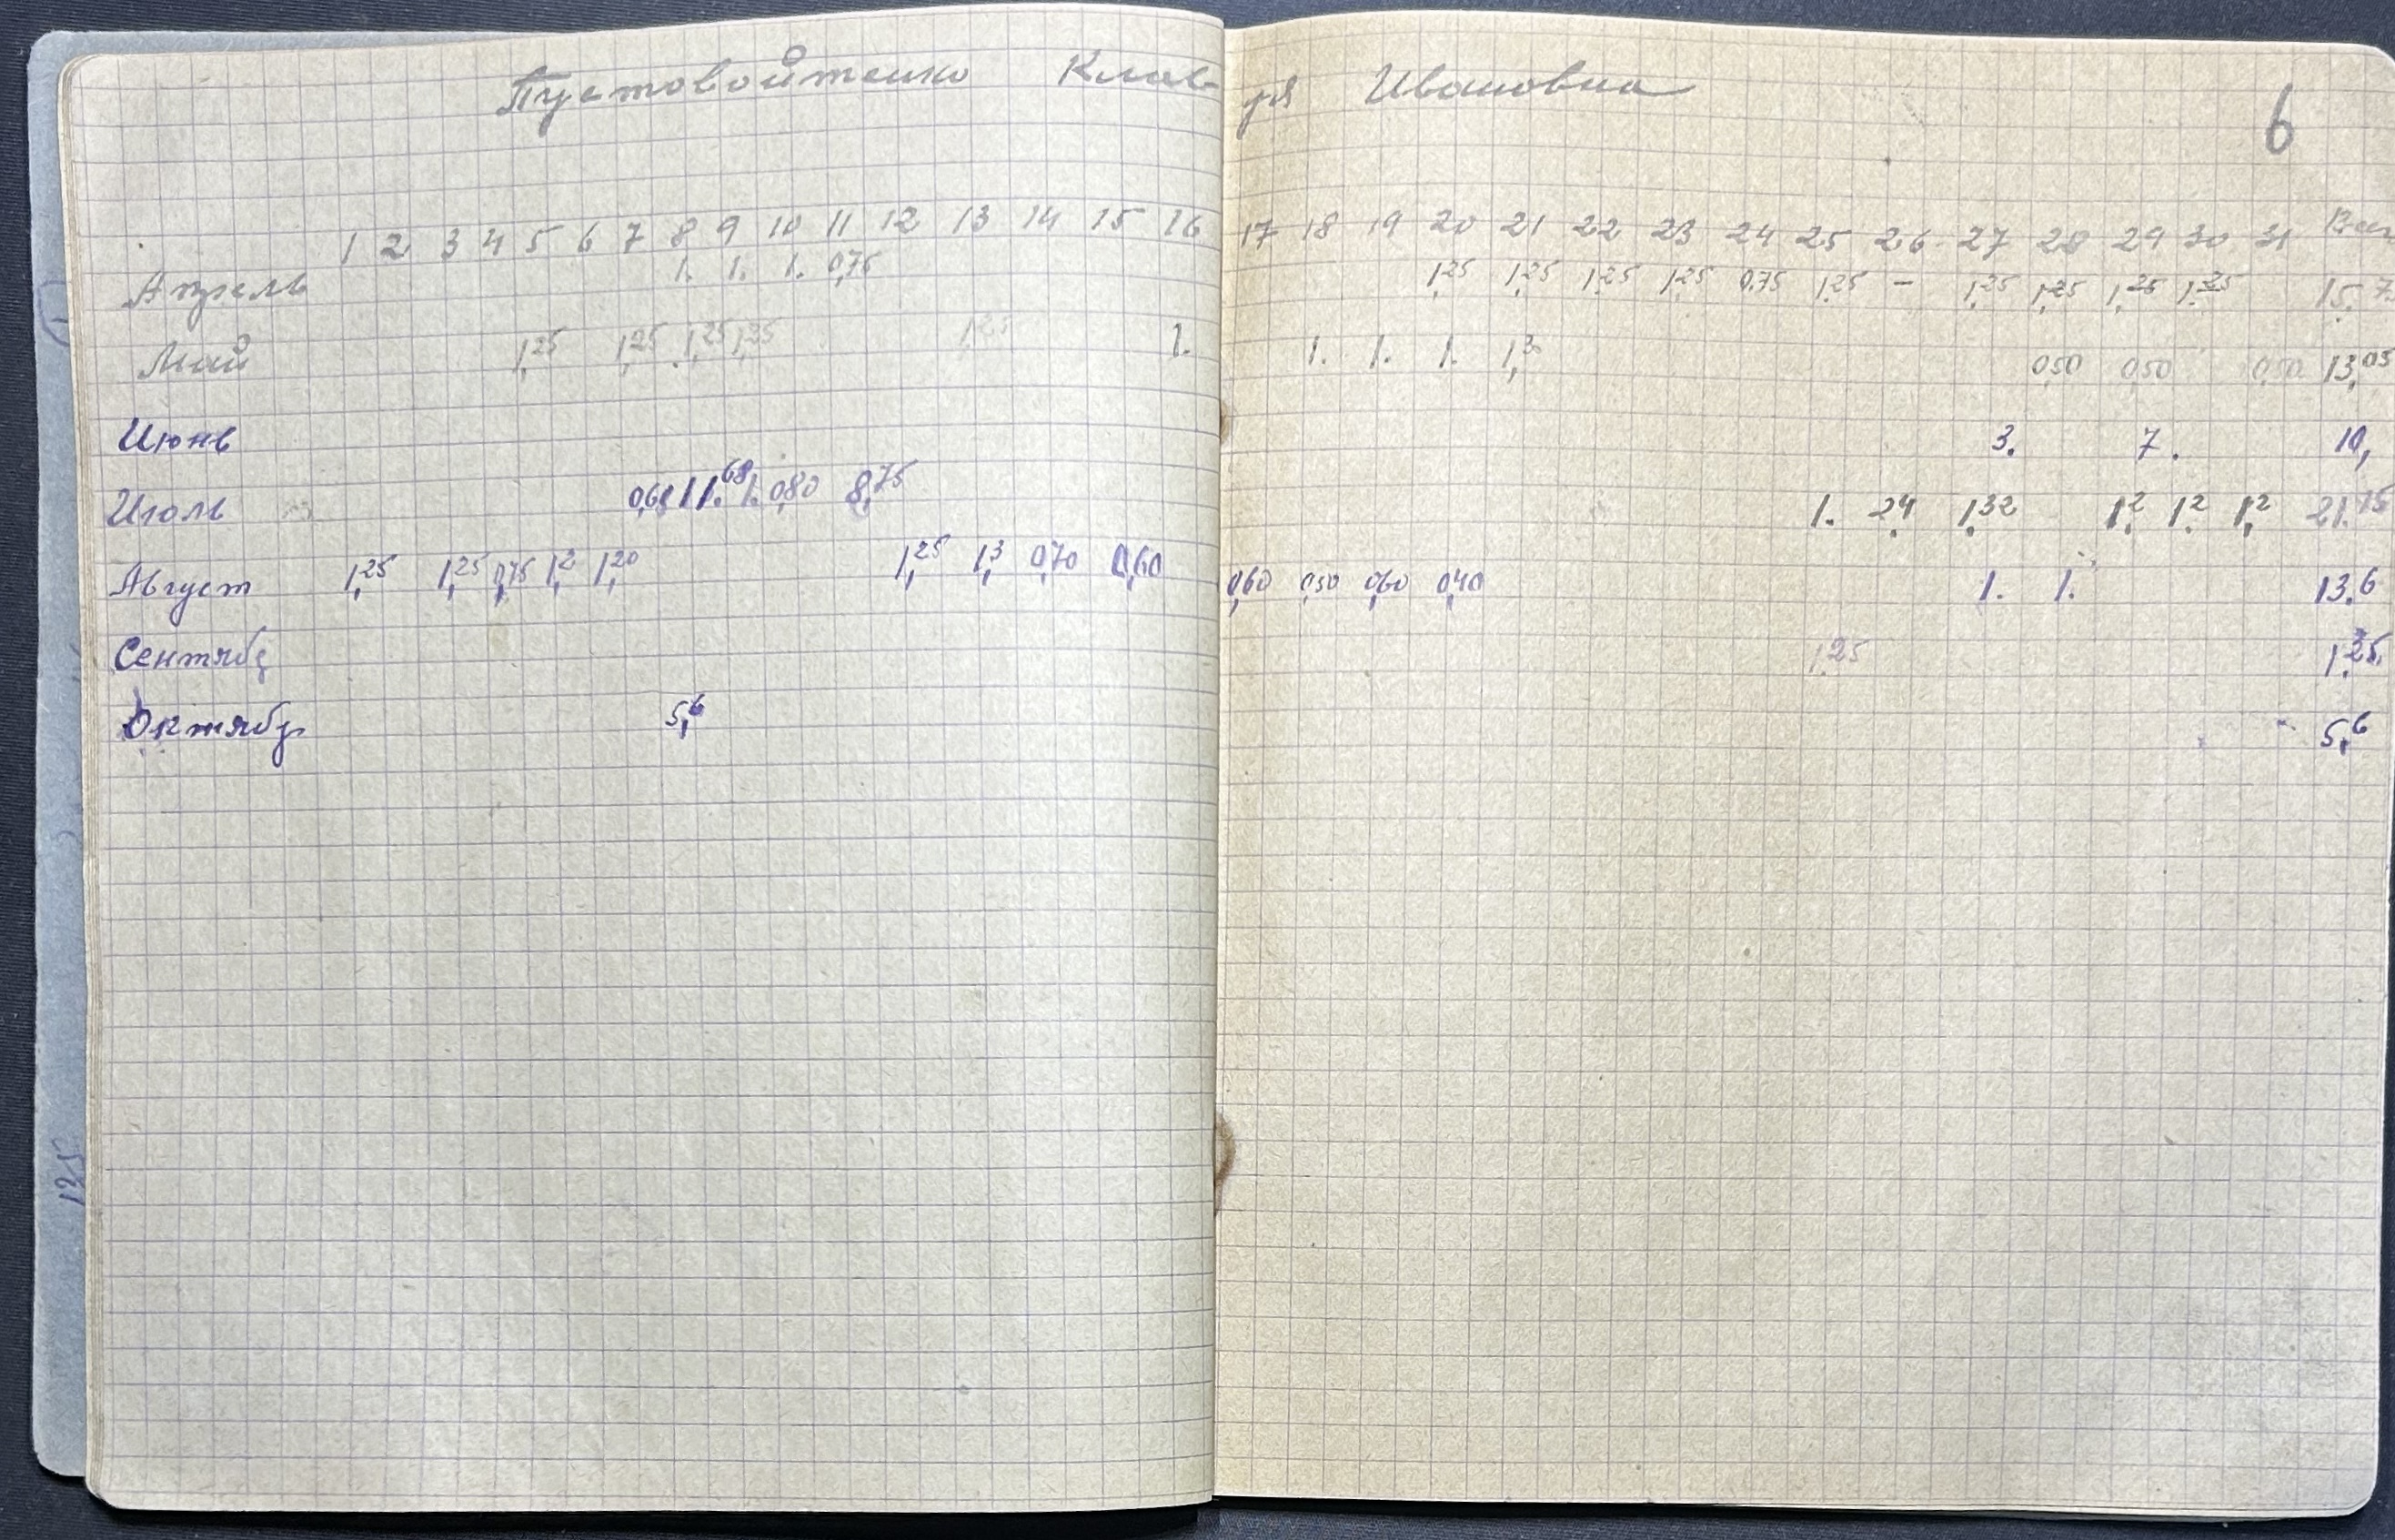 Пустовойтенко Клавдя Ивановна
6
1 2 3 4 5 6 7 8 9 10 11 12 13 14 15 16 17 18 19 20 21 22 23 24 25 26 27 28 29 30 31
Апрель 1. 1. 1. 0,75 1,25 1,25 1,25 1,25 0,75 1,25 – 1,25 1,25 1,25 1,25 15,7
Май 1,25 1,25 1,25 1,25 1,25 1. 1. 1. 1. 1,3 0,50 0,50 0,50 13,05
Июнь 3. 7. 10,
Июль 0,68 1 1.68 1. 0,80 8,75 1. 2,4 1,32 1,2 1,2 1,2 21.15
Август 1,25 1,25 0,75 1,2 1,20 1,25 1,3 0,70 0,60 0,60 0,50 0,60 0,40 1. 1. 13.6
Сентябр 1,25 1,25
Октябр 5,6 5,6
135